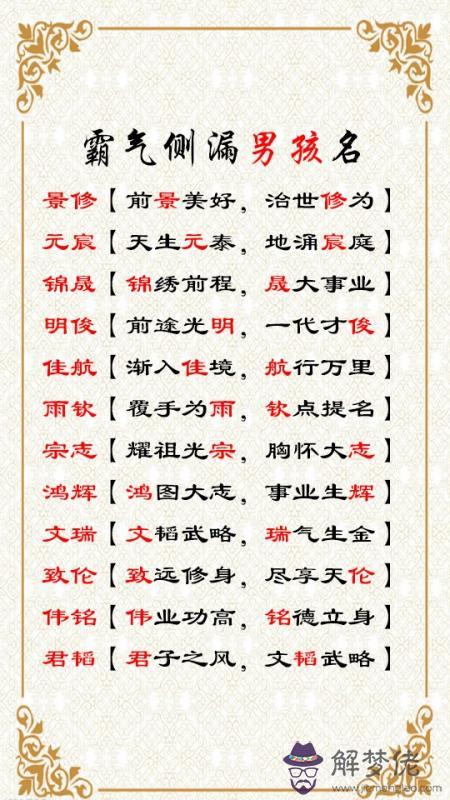 霸气侧漏男孩名
景修【前景美好，治世修为】
元宸【天生元泰，地涌宸庭】
锦晟【锦绣前程，晟大事业】
明俊【前途光明，一代才俊】
佳航【渐入佳境，航行万里】
雨钦【覆手为雨，钦点提名】
宗志【耀祖光宗，胸怀大志】
鸿辉【鸿图大志，事业生辉】
文瑞【文韬武略，瑞气生金】
致伦【致远修身，尽享天伦】
伟铭【伟业功高，铭德立身】
君韬【君子之风，文韬武略】
解梦佬